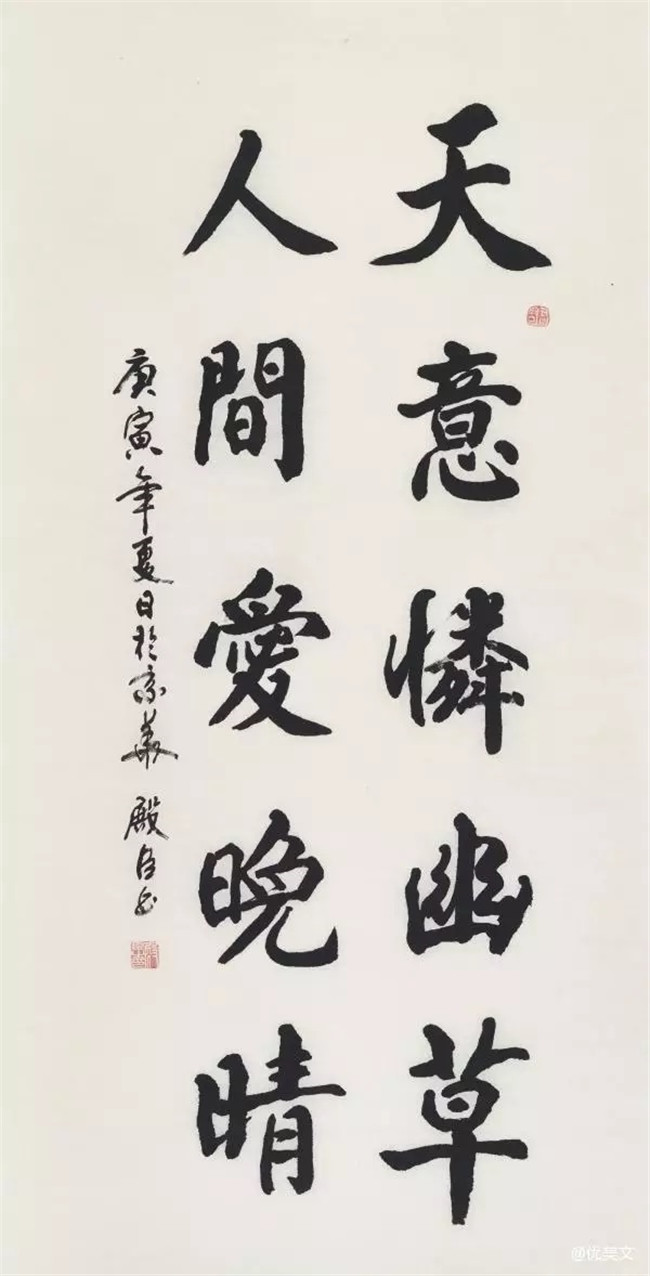 天意憐幽草
人間愛晚晴
庚寅年夏日於京華 殿臣書
@优美文